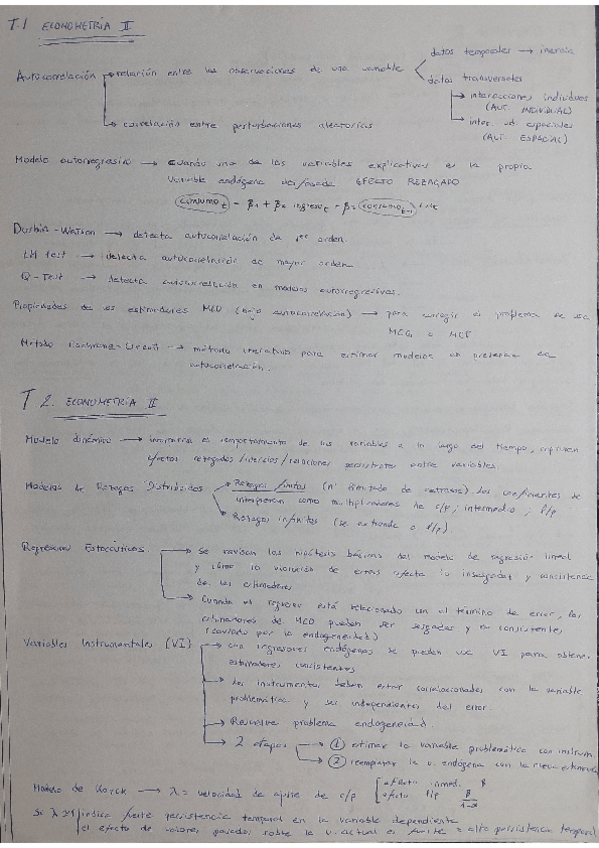 T.1 ECONOMETRÍA II
datos temporales → inercia
Autocorrelación → relación entre las observaciones de una variable
datos transversales
→ interacciones individuos
(AUT. INDIVIDUAL)
→ correlación entre perturbaciones aleatorias
→ inter. espaciales
(AUT. ESPACIAL)
Modelo autorregresivo → Cuando una de las variables explicativas es la propia
variable endógena EFECTO REZAGADO
consumo t = β1 + β2 ingreso t + β3 consumo t-1
Durbin-Watson → detecta autocorrelación de 1er orden.
LM test → detecta autocorrelación de mayor orden.
Q-Test → detecta autocorrelación en modelos autorregresivos.
Propiedades de los estimadores MCO (bajo autocorrelación) → para corregir el problema se usa
MCG o MCF
Método → método iterativo para estimar modelos en presencia de
autocorrelación.
T 2. ECONOMETRÍA II
Modelo dinámico → el comportamiento de las variables a lo largo del tiempo,
efectos retardados/inercias/relaciones persistentes entre variables.
Modelos de Retagos Distribuidos → Retagos finitos (nº limitado de retardos). Los coeficientes se
interpretan como multiplicadores de c/p, intermedio, l/p
→ Retagos infinitos (se extiende a l/p).
Regresores Estocásticos. → Se revisan las hipótesis básicas del modelo de regresión lineal
y cómo la violación de estas afecta la insesgadez y consistencia
de los estimadores
→ Cuando el regresor está relacionado con el término de error, los
estimadores de MCO pueden ser sesgados y no consistentes
(causado por la endogeneidad)
Variables Instrumentales (VI) → con regresores endógenos se pueden usar VI para obtener
estimadores consistentes
→ Los instrumentos deben estar correlacionados con la variable
problemática y ser independientes del error.
→ Resuelve problema endogeneidad.
→ 2 etapas → ① estimar la variable problemática con instrum.
→ ② reemplazar la v. endógena con la nueva estimada
Modelo de Koyck → λ = velocidad de ajuste de c/p [efecto inmed. β
efecto l/p β/1-λ
Si λ ≈ 1 indica fuerte persistencia temporal en la variable dependiente
el efecto de valores pasados sobre la v. actual es fuerte = alta persistencia temporal